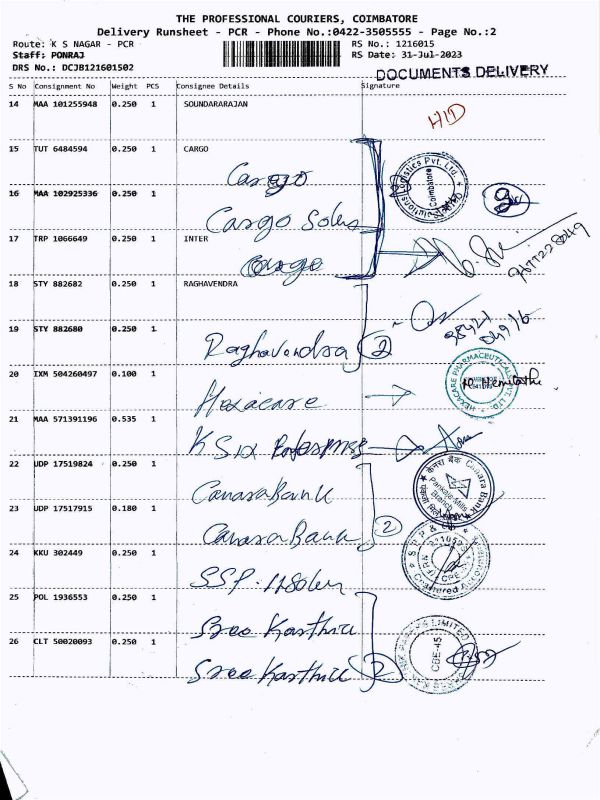 THE PROFESSIONAL COURIERS, COIMBATORE
Delivery Runsheet - PCR - Phone No.:0422-3505555 - Page No.:2
Route: K S NAGAR - PCR RS No.: 1216015
Staff: PONRAJ RS Date: 31-Jul-2023
DRS No.: DCJB121601502 DOCUMENTS DELIVERY
S No Consignment No Weight PCS Consignee Details Signature
14 MAA 101255948 0.250 1 SOUNDARARAJAN
H/D
15 TUT 6484594 0.250 1 CARGO
Cargo
Logistics Pvt. Ltd. Coimbatore
16 MAA 102925336 0.250 1
Cargo Solus
17 TRP 1066649 0.250 1 INTER
Cargo
18 STY 882682 0.250 1 RAGHAVENDRA
19 STY 882680 0.250 1
Raghavendra 2
20 IXM 504260497 0.100 1
Hexacare
HEXACARE PHARMACEUTICAL PVT. LTD
21 MAA 571391196 0.535 1
22 UDP 17519824 0.250 1
Canara Bank
केनरा बैंक Canara Bank
23 UDP 17517915 0.180 1
Canara Bank 2
24 KKU 302449 0.250 1
SPP & Chartered Accountants
25 POL 1936553 0.250 1
Sree Karthik
LIMITED CBE-45
26 CLT 50020093 0.250 1
Sree Karthik 2